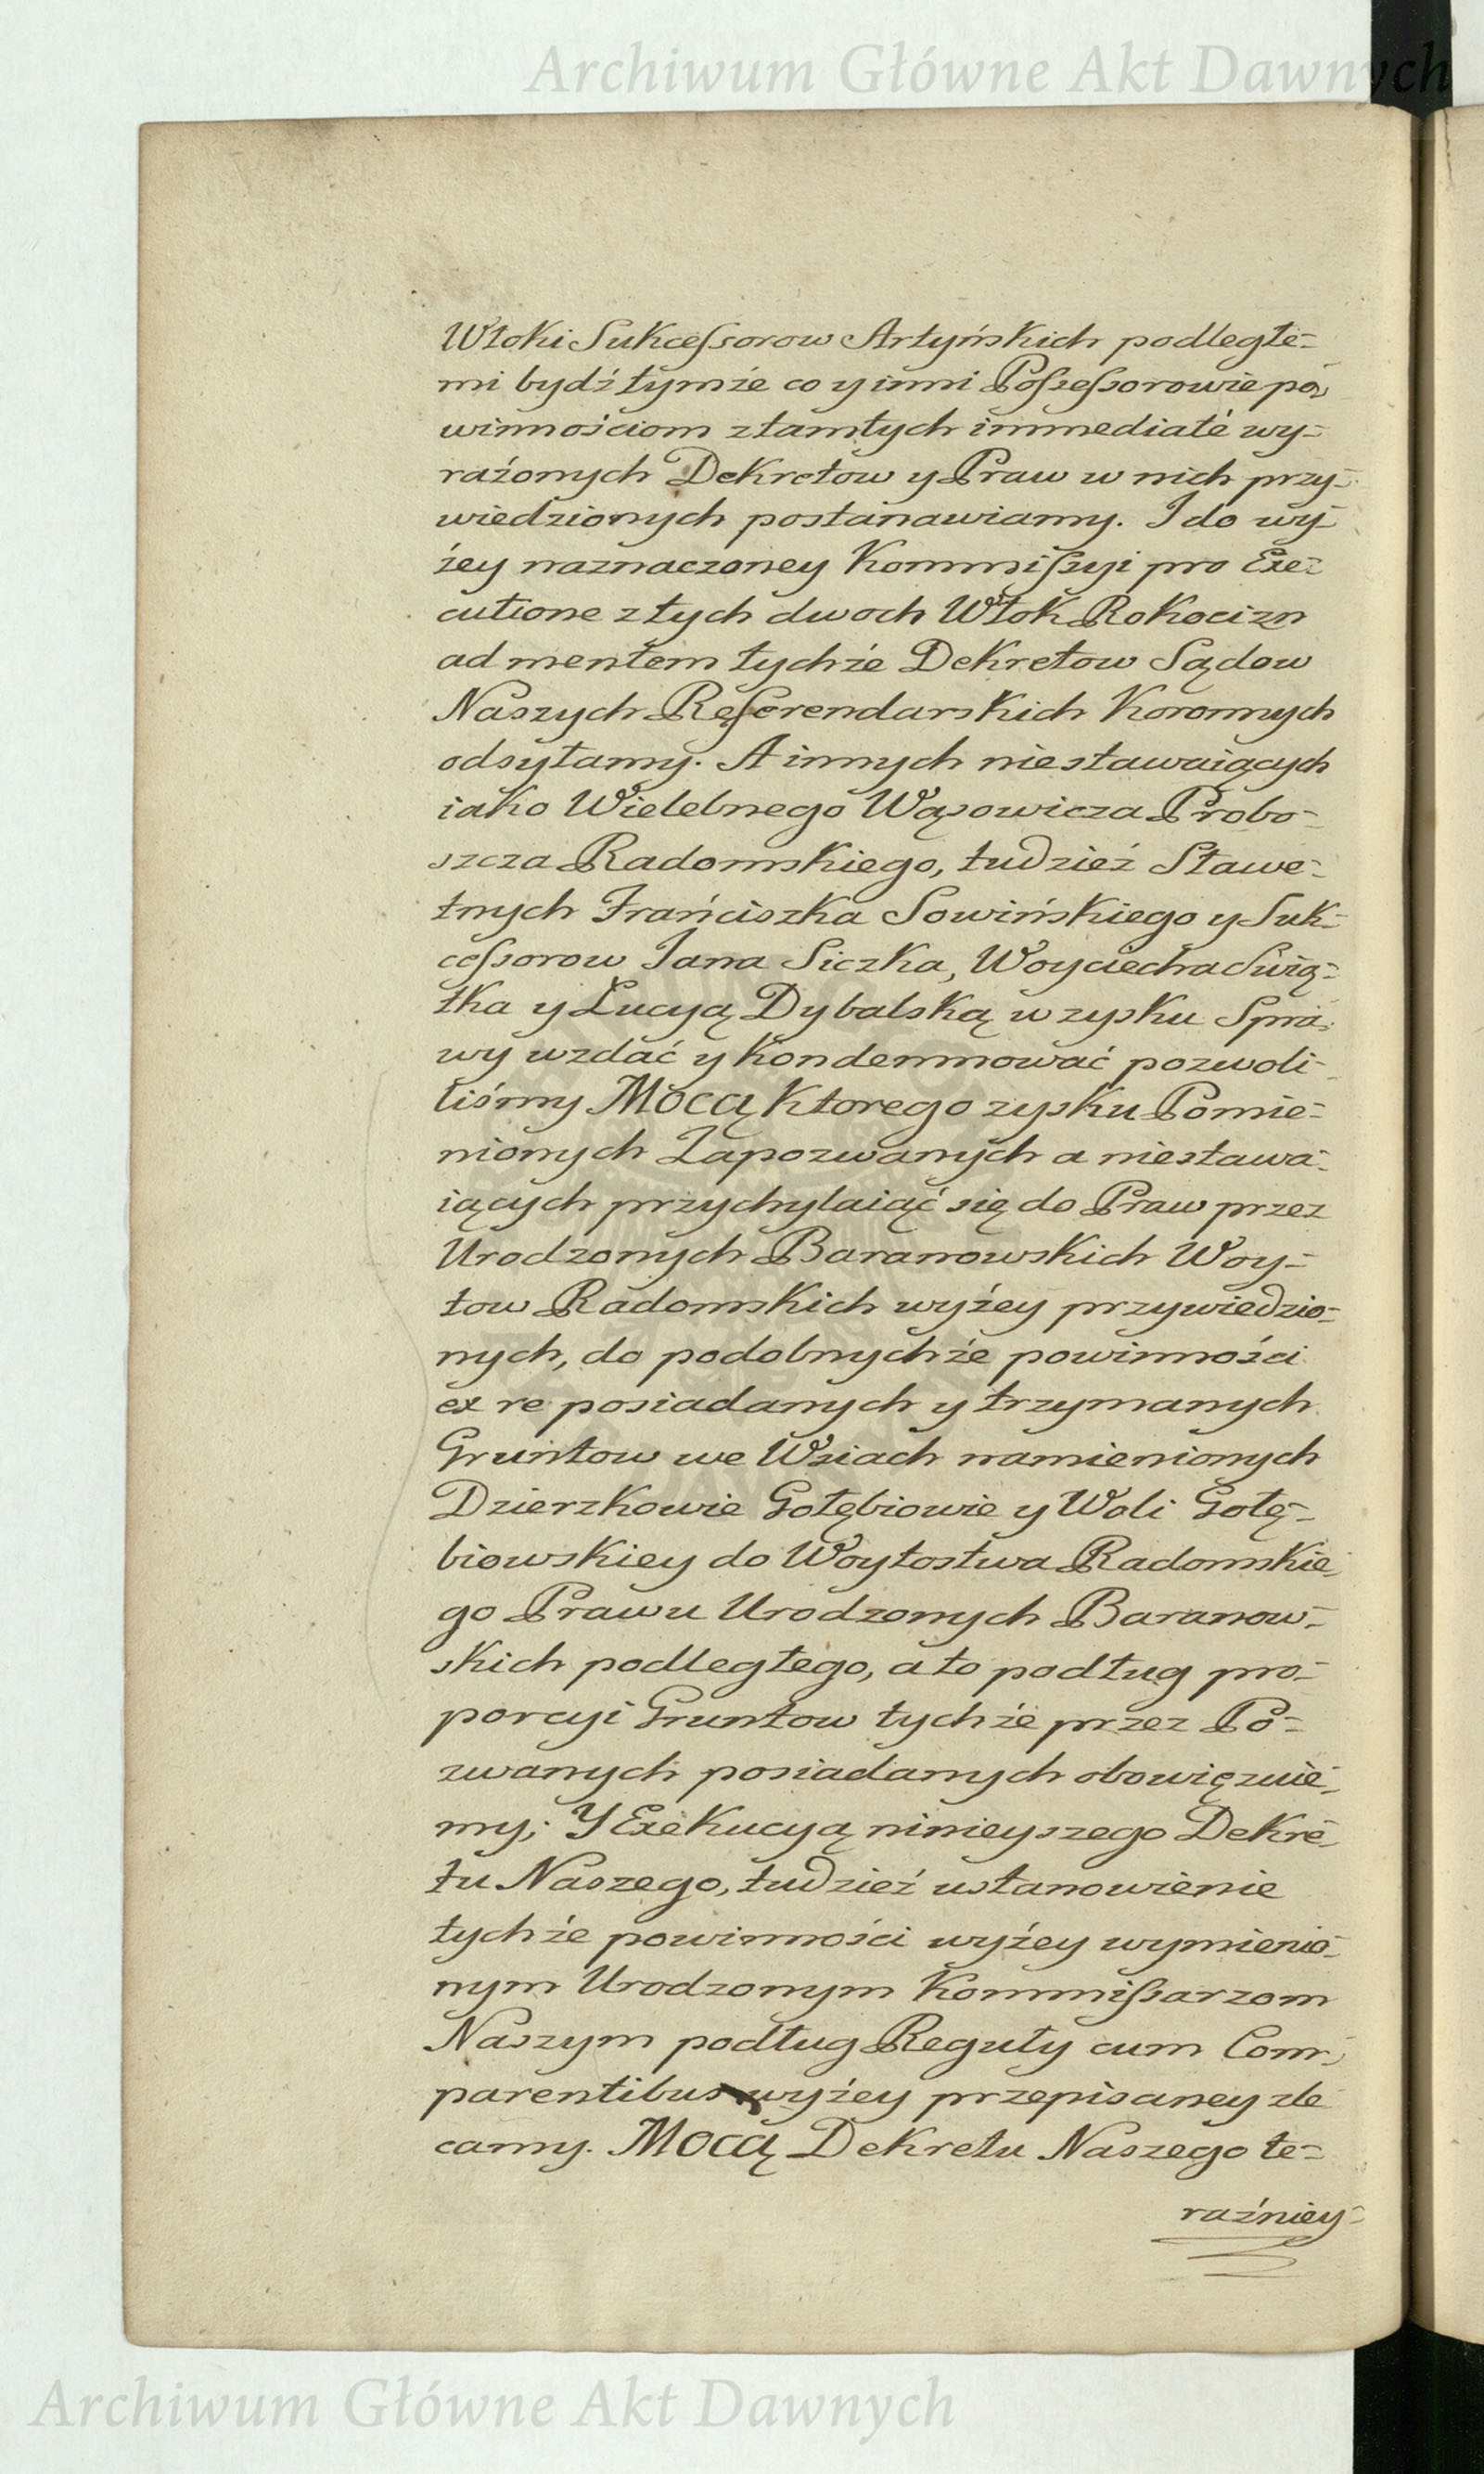 Archiwum Główne Akt Dawnych
Włoki Sukcessorow Artyńskich podległe=
mi bydź tymże co y inni Possessorowie po=
winnościom z tamtych immediaté wy=
rażonych Dekretow y Praw w nich przy=
wiedzionych postanawiamy. I do wy=
żey naznaczoney Kommissyi pro Exe=
cutione z tych dwoch Włok Rokocizn
ad mentem tychże Dekretow Sądow
Naszych Referendarskich Koronnych
odsyłamy. A innych niestawaiących
iako Wielebnego Wąsowicza Probo=
szcza Radomskiego, tudzież Sławe=
tnych Franciszka Sowińskiego y Suk=
cessorow Jana Siczka, Woyciecha Swią=
tka y Łucyą Dybalską w zysku Spra=
wy wzdać y kondemnować pozwoli=
liśmy Mocą Ktorego zysku Pomie=
nionych Zapozwanych a niestawa=
iących przychylaiąć się do Praw przez
Urodzonych Baranowskich Woy=
tow Radomskich wyżey przywiedzio=
nych, do podobnychże powinności
ex re posiadanych y trzymanych
Gruntow we Wsiach namienionych
Dzierzkowie Gołębiowie y Woli Gołę=
biowskiey do Woytostwa Radomskie=
go Prawu Urodzonych Baranow=
skich podległego, a to podług pro=
porcyi Gruntow tychże przez Po=
zwanych posiadanych obowięzuie=
my; Y Exekucyą ninieyszego Dekre=
tu Naszego, tudzież ustanowienie
tychże powinności wyżey wymienio=
nym Urodzonym Kommissarzom
Naszym podług Reguły cum Com=
parentibus wyżey przepisaney zle
camy. Mocą Dekretu Naszego te=
raźniey=
Archiwum Główne Akt Dawnych